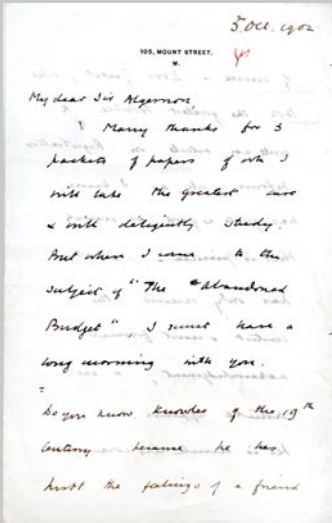 5. Oct. 1902
105, MOUNT STREET,
W.
My dear Sir Algernon,
Many thanks for 3
packets of papers of wh I
will take the greatest care
& will diligently study.
But when I come to the
subject of "The Abandoned
Budget", I must have a
long morning with you.
Do you know Knowles of the 19th
Century because he has
hurt the feelings of a friend